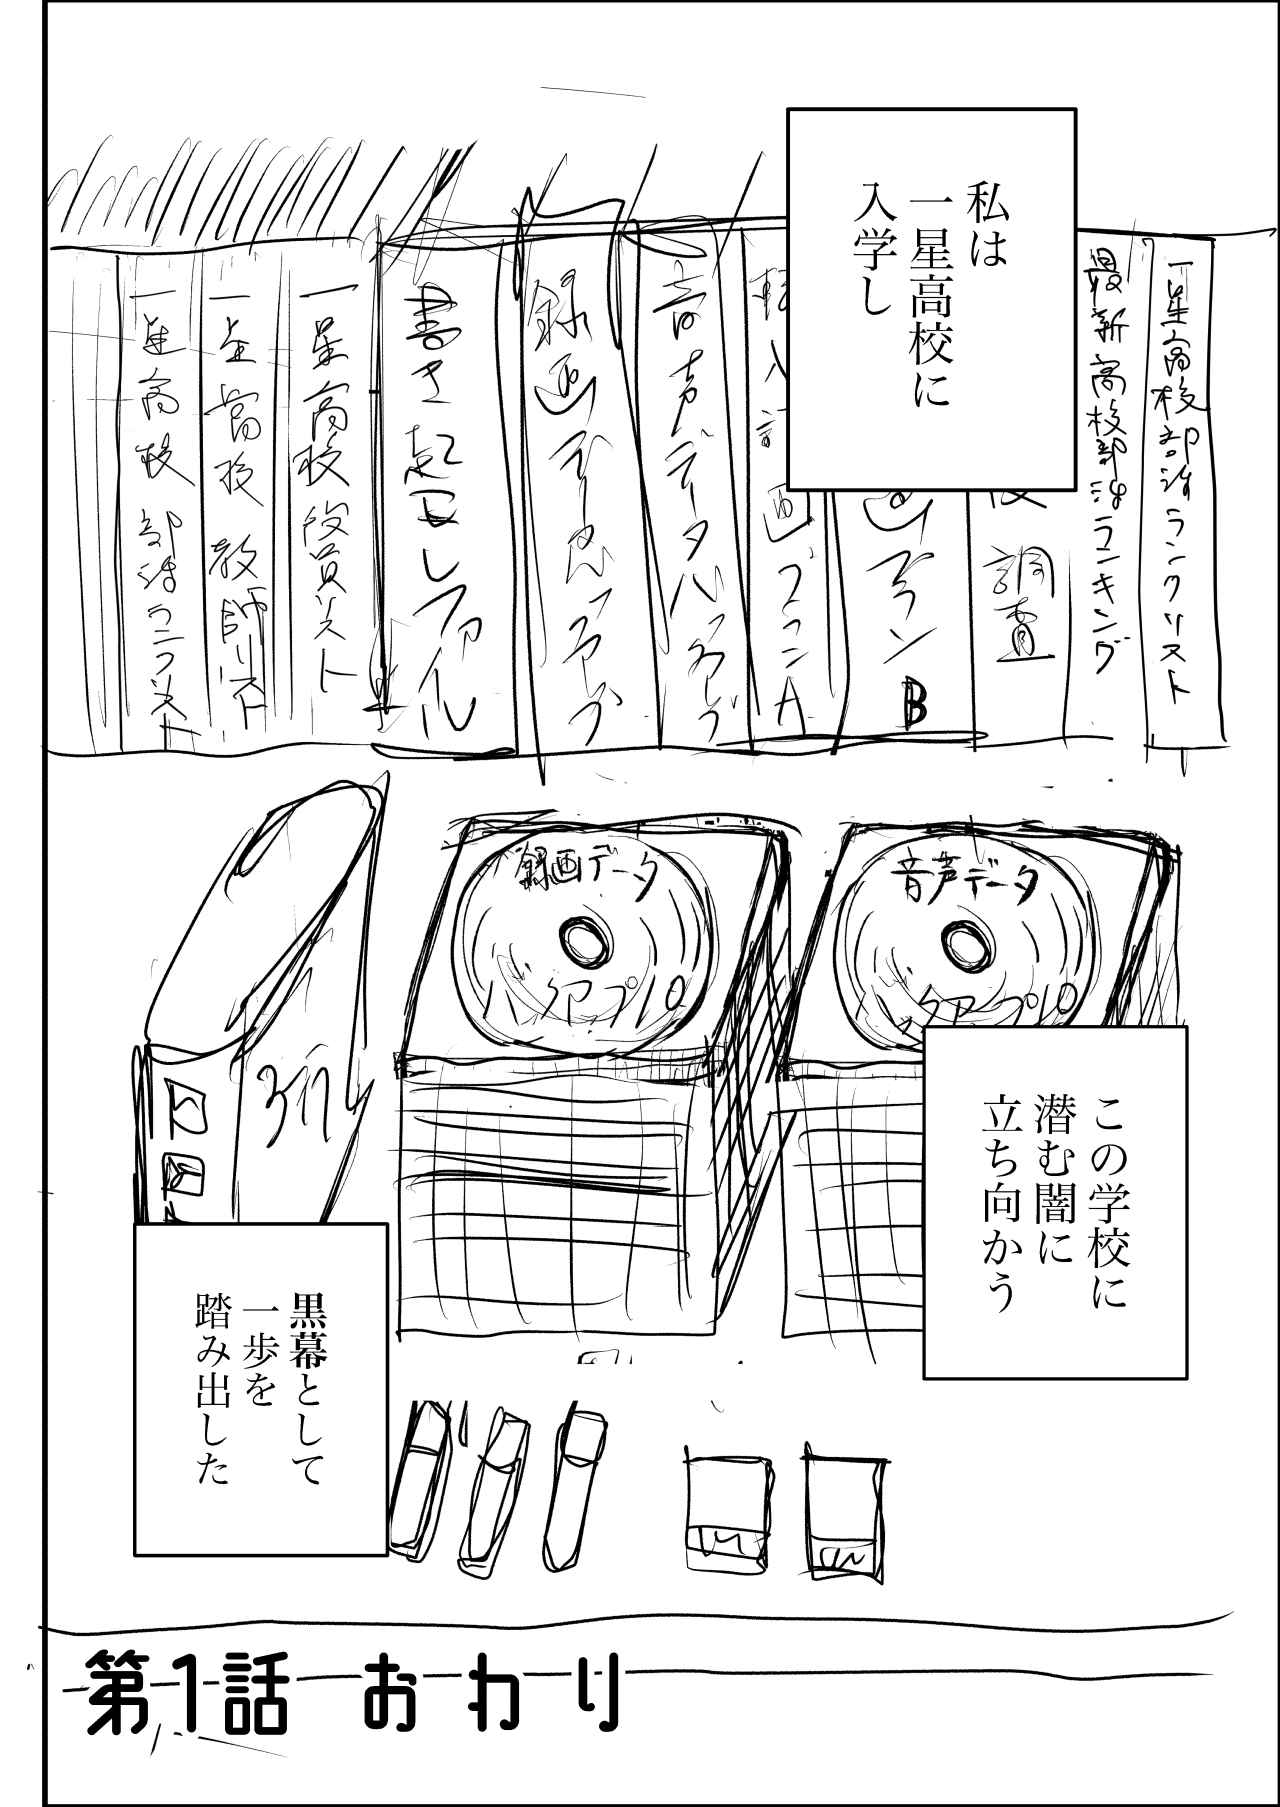 私は
一星高校に
入学し
一星高校部活ランクリスト
最新高校部活ランキング
調査
B
A
音声データバックアップ
録画データバックアップ
書き起こしファイル
一星高校役員リスト
一星高校教師リスト
一星高校部活ランクリスト
音声データ
バックアップ用
録画データ
バックアップ用
この学校に
潜む闇に
立ち向かう
黒幕として
一歩を
踏み出した
第1話 おわり